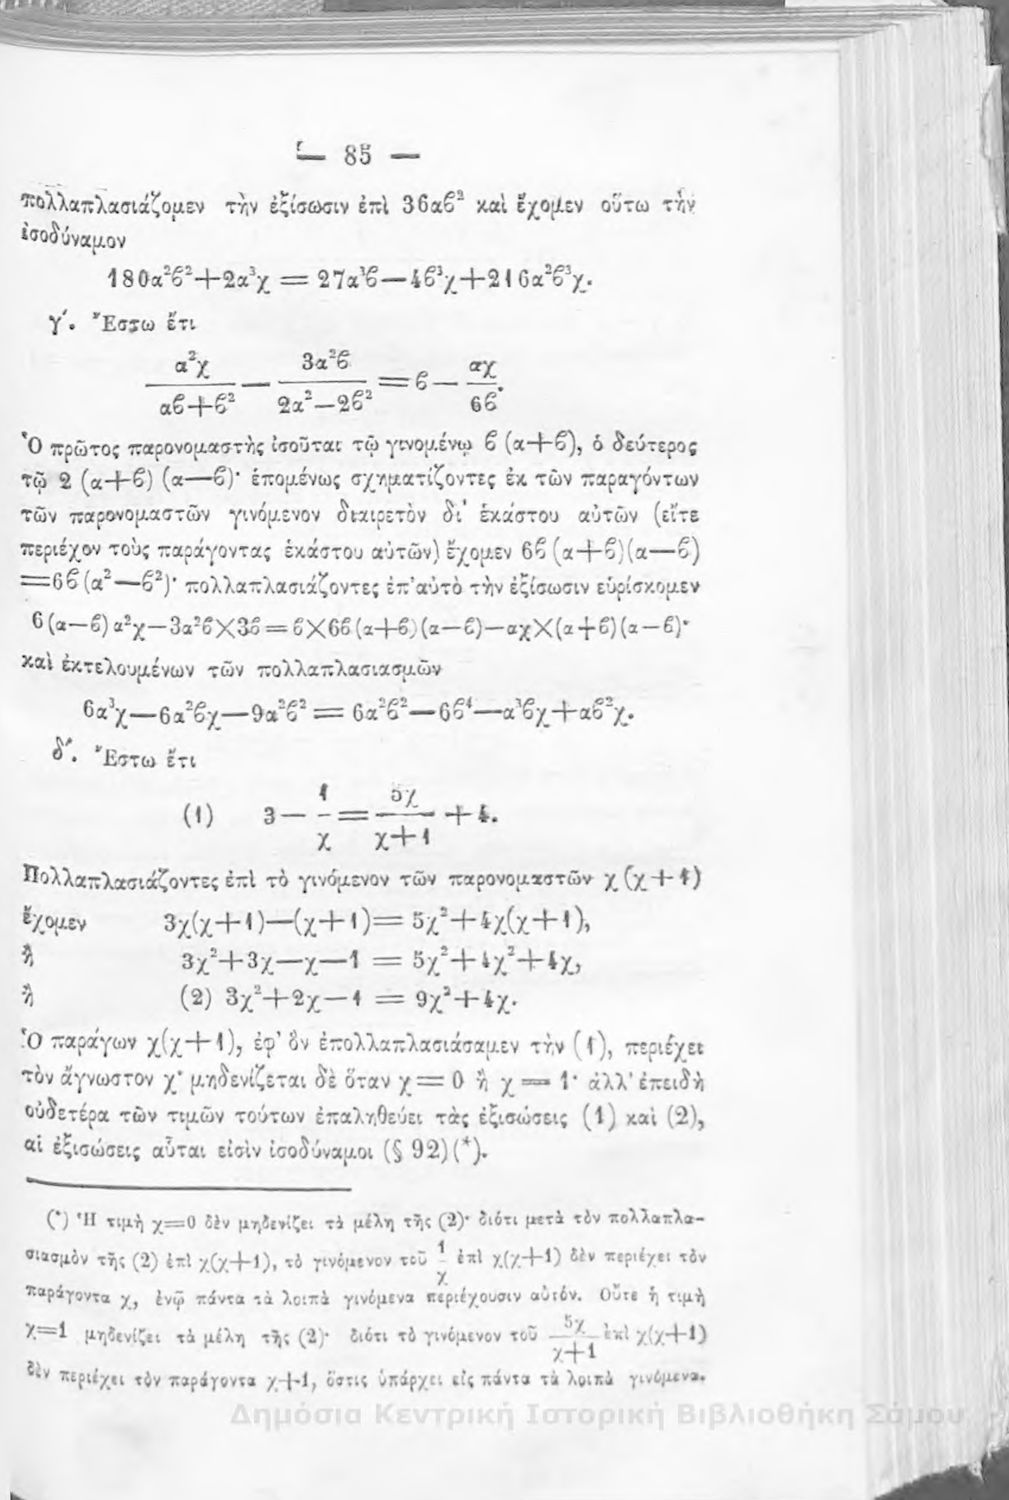 — 85 —
πολλαπλασιάζομεν τὴν ἐξίσωσιν ἐπὶ 36αϐ² καὶ ἔχομεν οὕτω τὴν
ἰσοδύναμον
180α²ϐ²+2α³χ = 27α³ϐ—4ϐ³χ+216α²ϐ³χ.
γ΄. Ἔστω ἔτι
α²χ/(αϐ+ϐ²) — 3α²ϐ/(2α²—2ϐ²) = ϐ — αχ/6ϐ.
Ὁ πρῶτος παρονομαστὴς ἰσοῦται τῷ γινομένῳ ϐ (α+ϐ), ὁ δεύτερος
τῷ 2 (α+ϐ) (α—ϐ)· ἑπομένως σχηματίζοντες ἐκ τῶν παραγόντων
τῶν παρονομαστῶν γινόμενον διαιρετὸν δι' ἑκάστου αὐτῶν (εἴτε
περιέχον τοὺς παράγοντας ἑκάστου αὐτῶν) ἔχομεν 6ϐ (α+ϐ)(α—ϐ)
=6ϐ(α²—ϐ²)· πολλαπλασιάζοντες ἐπ' αὐτὸ τὴν ἐξίσωσιν εὑρίσκομεν
6(α—ϐ)α²χ—3α²ϐ×3ϐ=ϐ×6ϐ(α+ϐ)(α—ϐ)—αχ×(α+ϐ)(α—ϐ)·
καὶ ἐκτελουμένων τῶν πολλαπλασιασμῶν
6α³χ—6α²ϐχ—9α²ϐ² = 6α²ϐ²—6ϐ⁴—α³ϐχ+αϐ²χ.
δ΄. Ἔστω ἔτι
(1) 3 — 1/χ = 5χ/(χ+1) + 4.
Πολλαπλασιάζοντες ἐπὶ τὸ γινόμενον τῶν παρονομαστῶν χ (χ+1)
ἔχομεν 3χ(χ+1)—(χ+1)= 5χ²+4χ(χ+1),
ἢ 3χ²+3χ—χ—1 = 5χ²+4χ²+4χ,
ἢ (2) 3χ²+2χ—1 = 9χ²+4χ.
Ὁ παράγων χ(χ+1), ἐφ' ὃν ἐπολλαπλασιάσαμεν τὴν (1), περιέχει
τὸν ἄγνωστον χ· μηδενίζεται δὲ ὅταν χ = 0 ἢ χ = 1· ἀλλ' ἐπειδὴ
οὐδετέρα τῶν τιμῶν τούτων ἐπαληθεύει τὰς ἐξισώσεις (1) καὶ (2),
αἱ ἐξισώσεις αὗται εἰσὶν ἰσοδύναμοι (§ 92)(*).
(*) Ἡ τιμὴ χ=0 δὲν μηδενίζει τὰ μέλη τῆς (2)· διότι μετὰ τὸν πολλαπλα-
σιασμὸν τῆς (2) ἐπὶ χ(χ+1), τὸ γινόμενον τοῦ 1/χ ἐπὶ χ(χ+1) δὲν περιέχει τὸν
παράγοντα χ, ἐνῷ πάντα τὰ λοιπὰ γινόμενα περιέχουσιν αὐτόν. Οὔτε ἡ τιμὴ
χ=1 μηδενίζει τὰ μέλη τῆς (2)· διότι τὸ γινόμενον τοῦ 5χ/(χ+1) ἐπὶ χ(χ+1)
δὲν περιέχει τὸν παράγοντα χ+1, ὅστις ὑπάρχει εἰς πάντα τὰ λοιπὰ γινόμενα.
Δημόσια Κεντρική Ιστορική Βιβλιοθήκη Σάμου